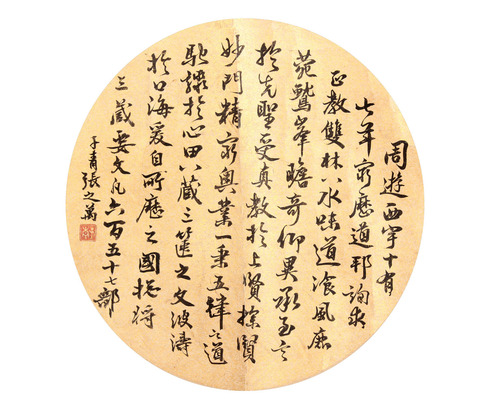 周遊西宇十有
七年窮歷道邦詢求
正教雙林八水味道飡風鹿
菀鷲峯瞻奇仰異承至言
於先聖受真教於上賢探賾
妙門精窮奧業一乘五律之道
馳驟於心田八藏三篋之文波濤
於口海爰自所歷之國揔將
三藏要文凡六百五十七部
子青張之萬